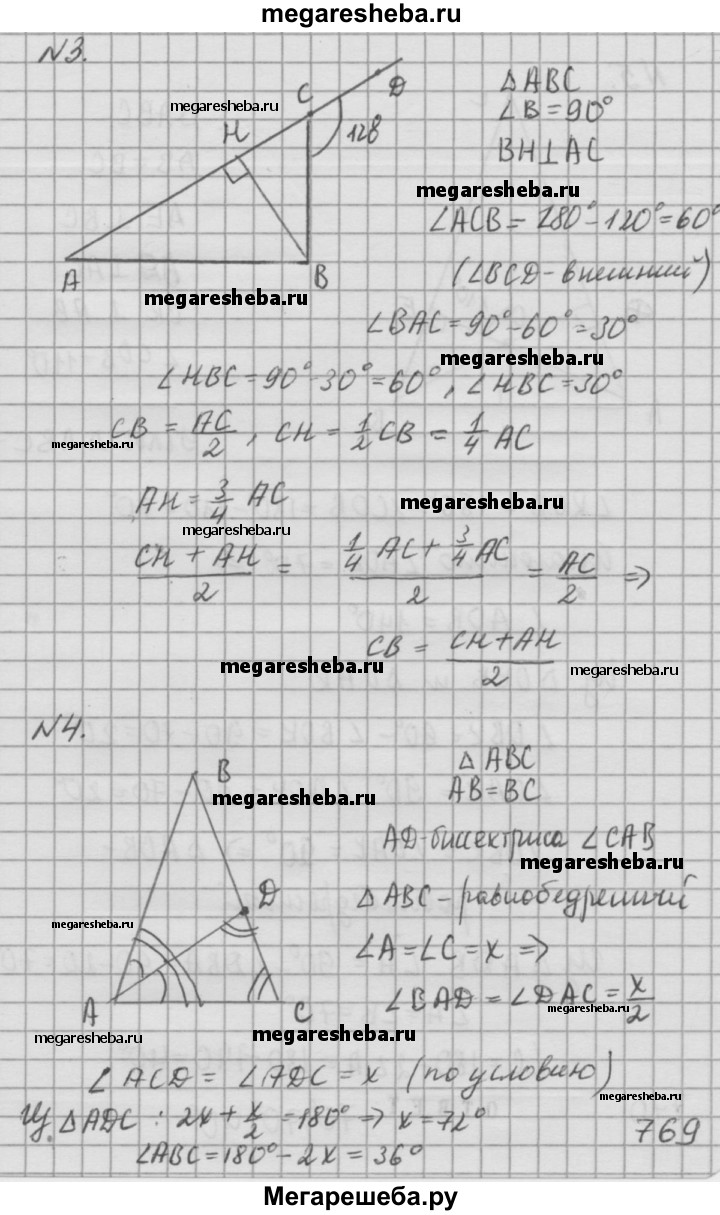 megaresheba.ru
N3.
C
D
128
H
A
B
megaresheba.ru
megaresheba.ru
△ABC
∠B=90°
BH⊥AC
megaresheba.ru
∠ACB=180°-120°=60°
(∠BCD-внешний)
∠BAC=90°-60°=30°
megaresheba.ru
∠HBC=90°-30°=60°, ∠HBC=30°
megaresheba.ru
CB = AC/2, CH = 1/2 CB = 1/4 AC
megaresheba.ru
AH = 3/4 AC
megaresheba.ru
(CH + AH)/2 = (1/4 AC + 3/4 AC)/2 = AC/2 ⇒
CB = (CH+AH)/2
megaresheba.ru
megaresheba.ru
N4.
B
D
A
C
megaresheba.ru
megaresheba.ru
△ABC
AB=BC
AD-биссектриса ∠CAB
megaresheba.ru
△ABC-равнобедренный
∠A=∠C=x ⇒
∠BAD = ∠DAC = x/2
megaresheba.ru
megaresheba.ru
megaresheba.ru
∠ACD = ∠ADC = x (по условию)
megaresheba.ru
Из △ADC: 2x + x/2 = 180° ⇒ x = 72°
∠ABC=180°-2x = 36°
769
Мегарешеба.ру